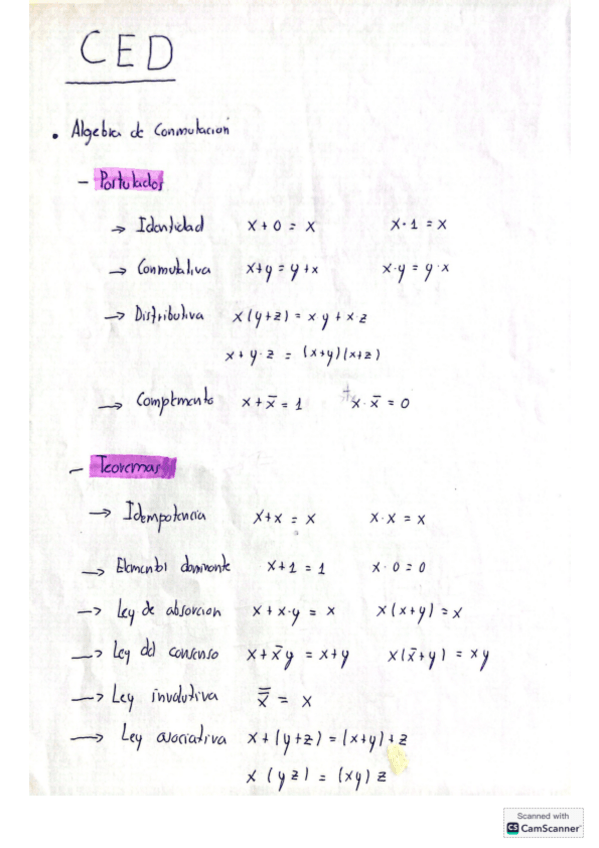 CED
• Algebra de Conmutacion
- Postulados
→ Identidad x + 0 = x x · 1 = x
→ Conmutativa x+y = y+x x·y = y·x
→ Distributiva x(y+z) = xy + xz
x + y·z = (x+y)(x+z)
→ Complemento x + x̄ = 1 x · x̄ = 0
- Teoremas
→ Idempotencia x+x = x x·x = x
→ Elemento dominante x+1 = 1 x · 0 = 0
→ Ley de absorcion x + x·y = x x(x+y) = x
→ Ley del consenso x + x̄y = x+y x(x̄+y) = xy
→ Ley involutiva x̿ = x
→ Ley asociativa x+(y+z) = (x+y)+z
x (yz) = (xy) z
Scanned with
CS CamScanner